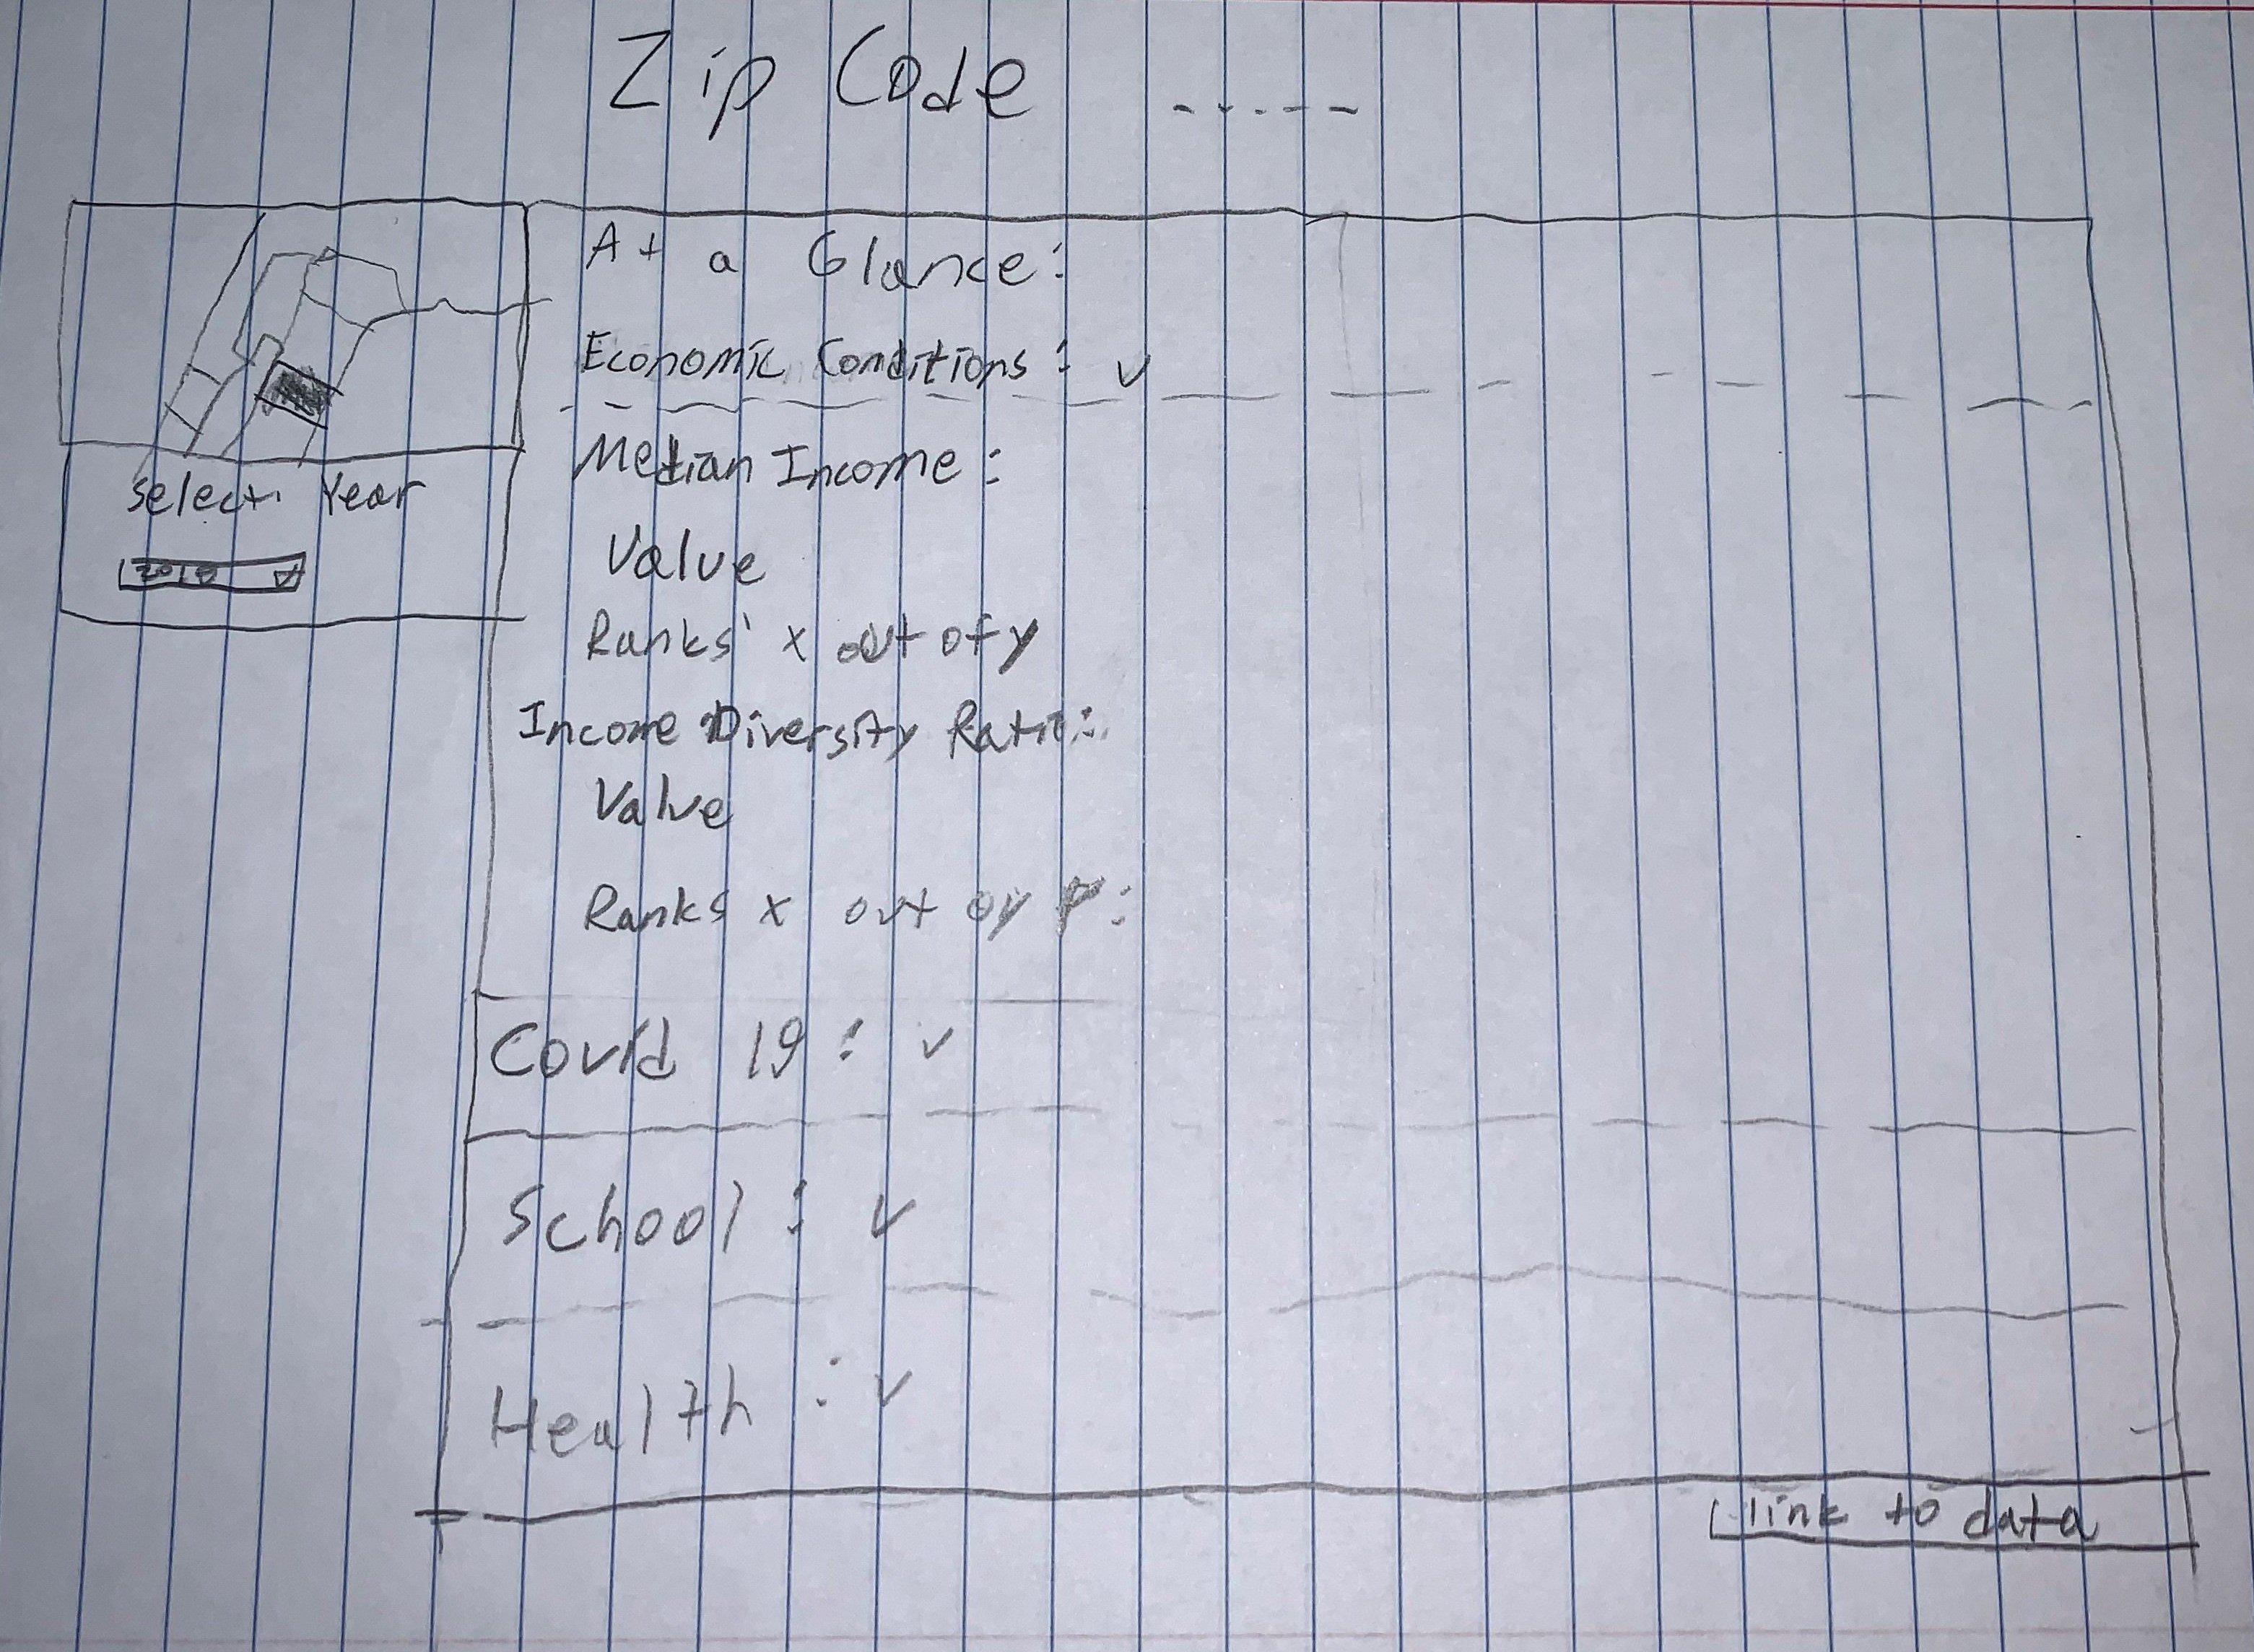 Zip Code -----
Select Year
2010
At a Glance:
Economic Conditions:
Median Income:
Value
Ranks x out of y
Income Diversity Ratio:
Value
Ranks x out oy
Covid 19:
School:
Health:
link to data